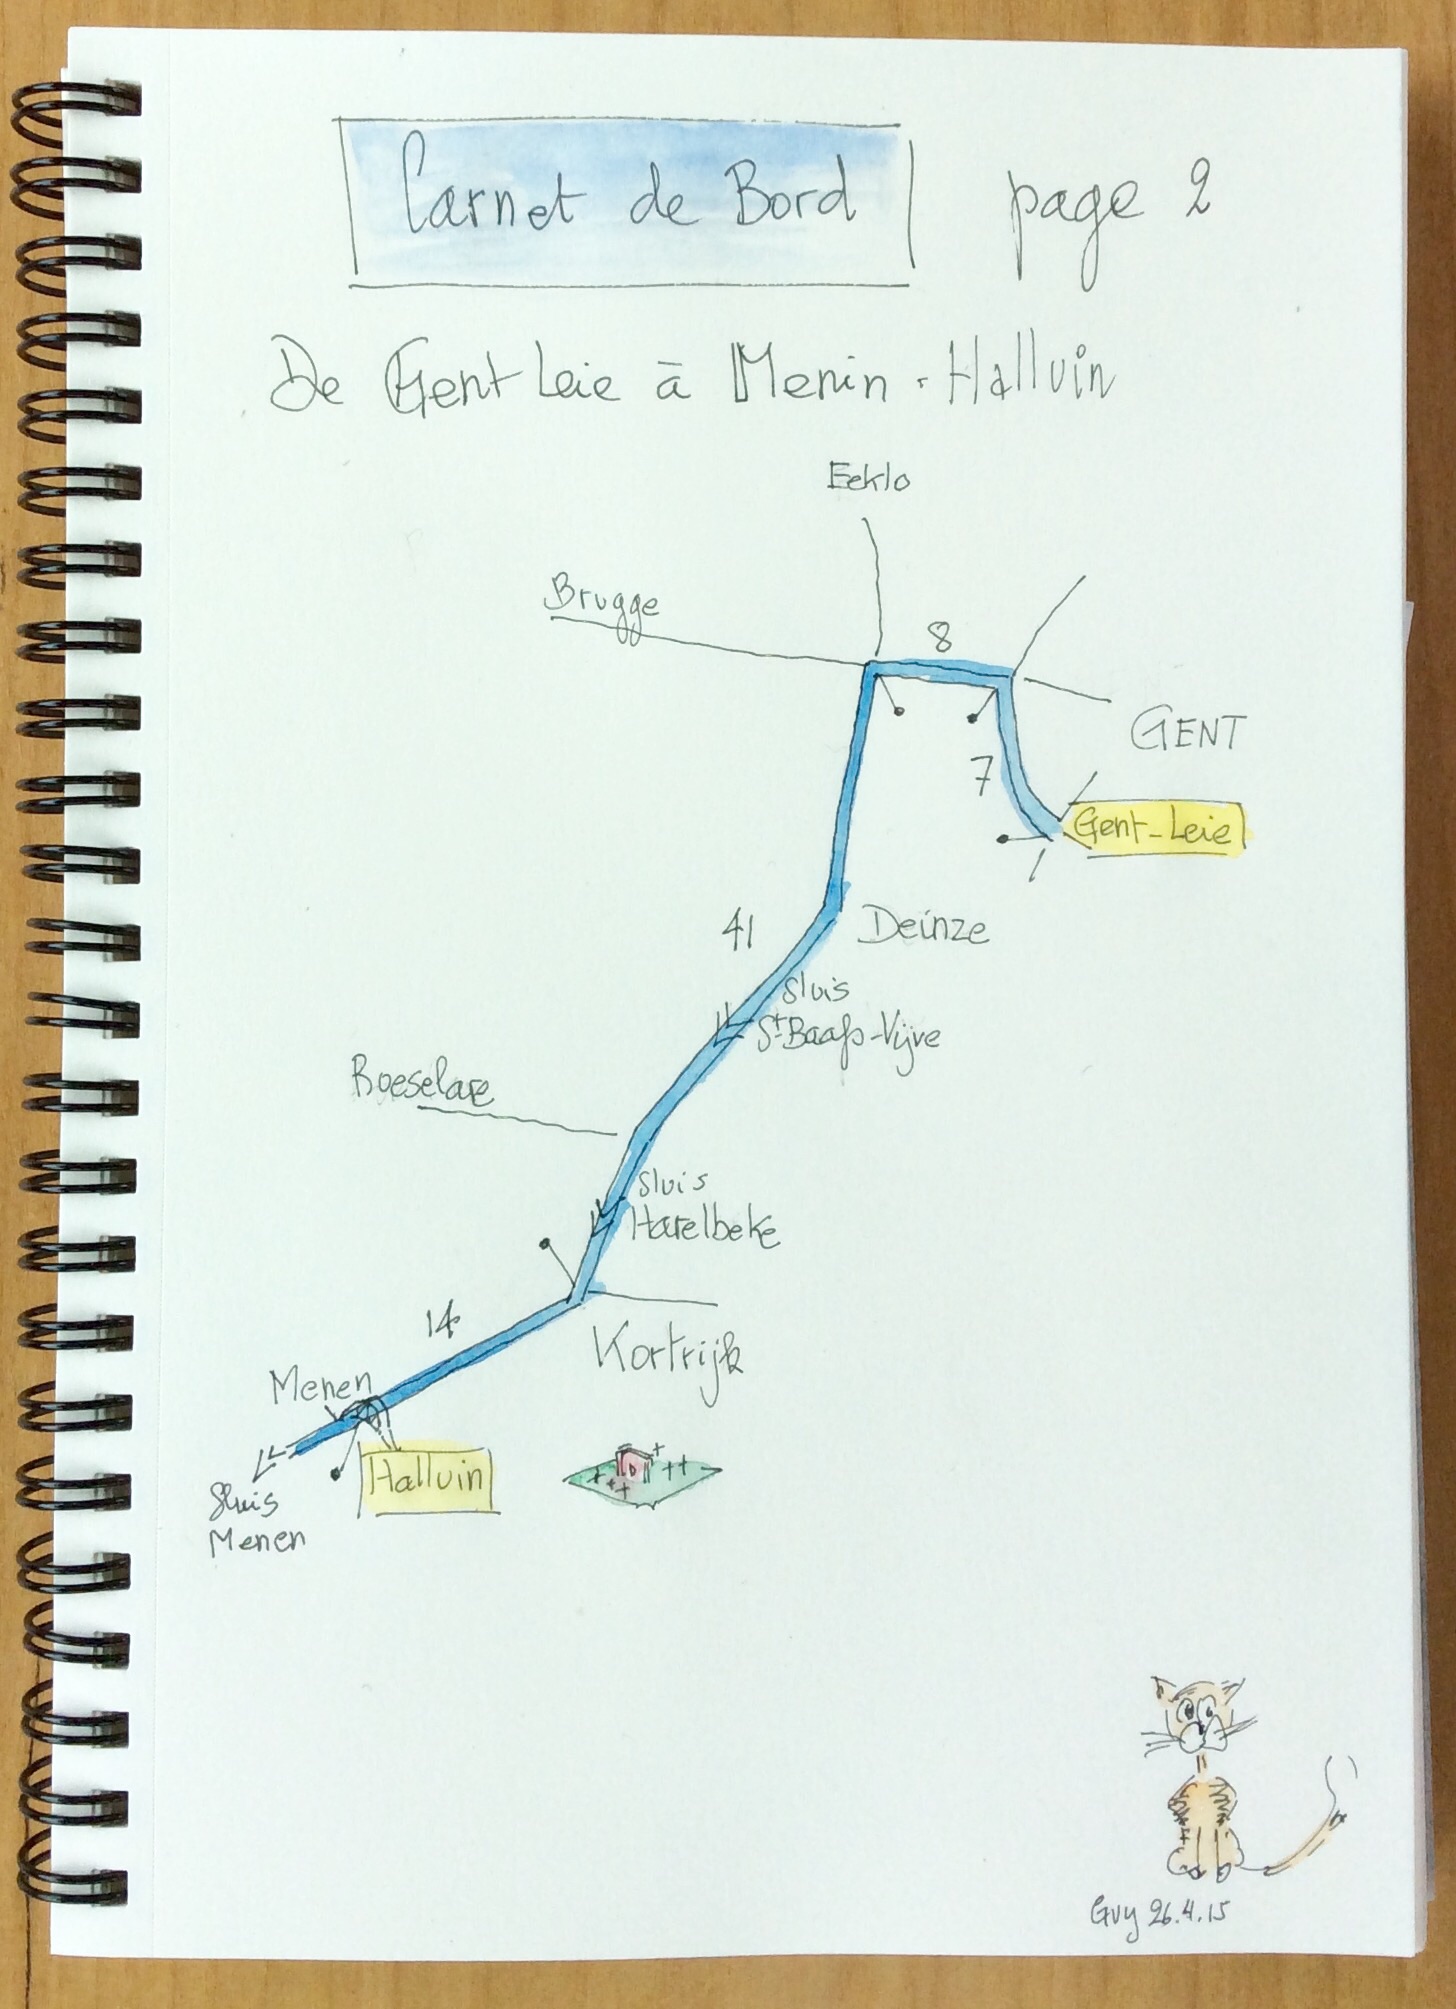 Carnet de Bord page 2
De Gent Leie à Menin - Halluin
Eeklo
Brugge
8
GENT
7
Gent-Leie
41
Deinze
Sluis
St Baafs-Vijve
Roeselare
Sluis
Harelbeke
14
Kortrijk
Menen
Halluin
Sluis
Menen
Guy 26.4.15